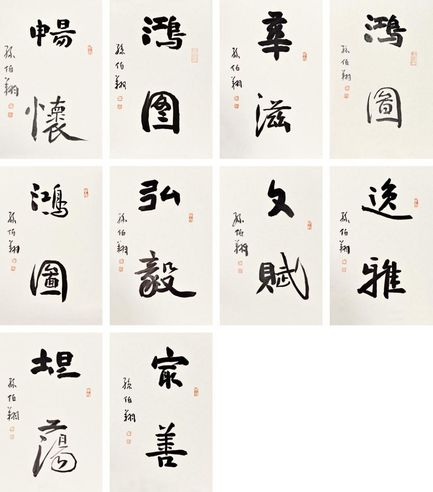 暢懷
孫伯翔
鴻图
孫伯翔
華滋
孫伯翔
鴻圖
孫伯翔
鴻圖
孫伯翔
弘毅
孫伯翔
文賦
孫伯翔
逸雅
孫伯翔
坦蕩
孫伯翔
善
孫伯翔